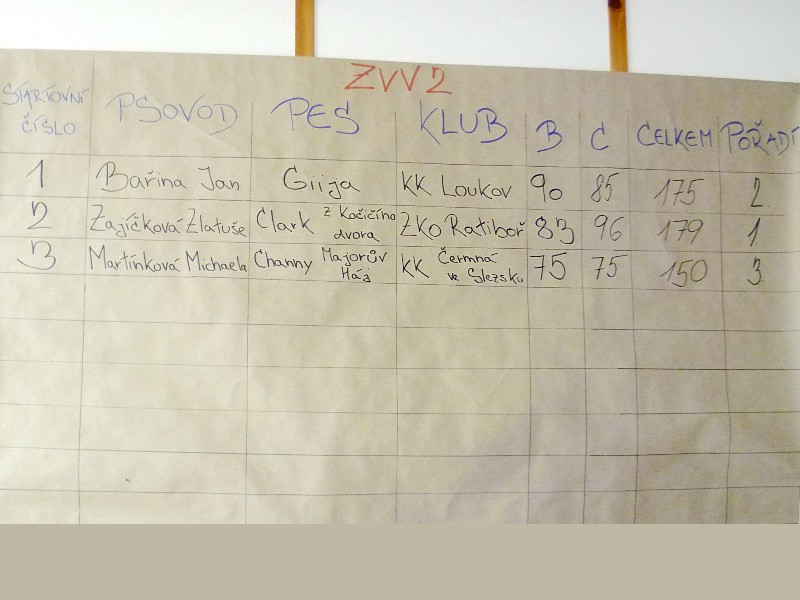 ZVV2
STARTOVNÍ ČÍSLO PSOVOD PES KLUB B C CELKEM POŘADÍ
1 Bařina Jan Giija KK Loukov 90 85 175 2
2 Zajíčková Zlatuše Clark z Kočičího dvora ZKO Ratiboř 83 96 179 1
3 Martínková Michaela Channy Majorův Háj KK Čermná ve Slezsku 75 75 150 3